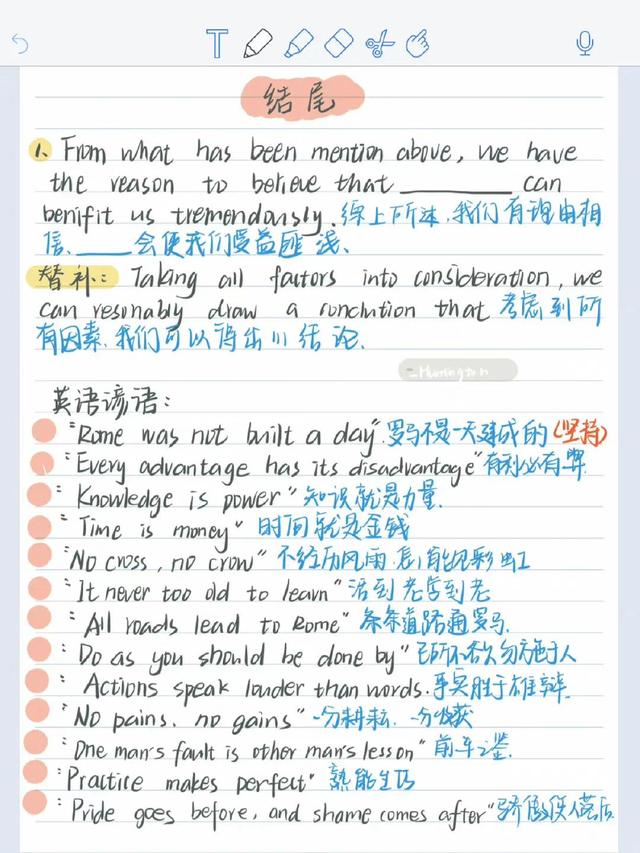 T
结尾
1. From what has been mention above, we have
the reason to believe that ________ can
benifit us tremendously. 综上所述,我们有理由相
信、____会使我们受益匪浅、
替补: Taking all factors into consideration, we
can resonably draw a conclution that 考虑到所
有因素,我们可以得出///结论.
英语谚语:
"Rome was not built a day". 罗马不是一天建成的(坚持)
"Every advantage has its disadvantage" 有利必有弊.
"Knowledge is power" 知识就是力量.
"Time is money" 时间就是金钱
"No cross, no crow" 不经历风雨,怎能见彩虹
"It never too old to learn" 活到老学到老
"All roads lead to Rome" 条条道路通罗马.
"Do as you should be done by" 己所不欲勿施于人
"Actions speak louder than words. 事实胜于雄辩.
"No pains, no gains" 一分耕耘,一分收获
"One man's fault is other man's lesson" 前车之鉴.
"Practice makes perfect" 熟能生巧
"Pride goes before, and shame comes after" 骄傲使人落后.